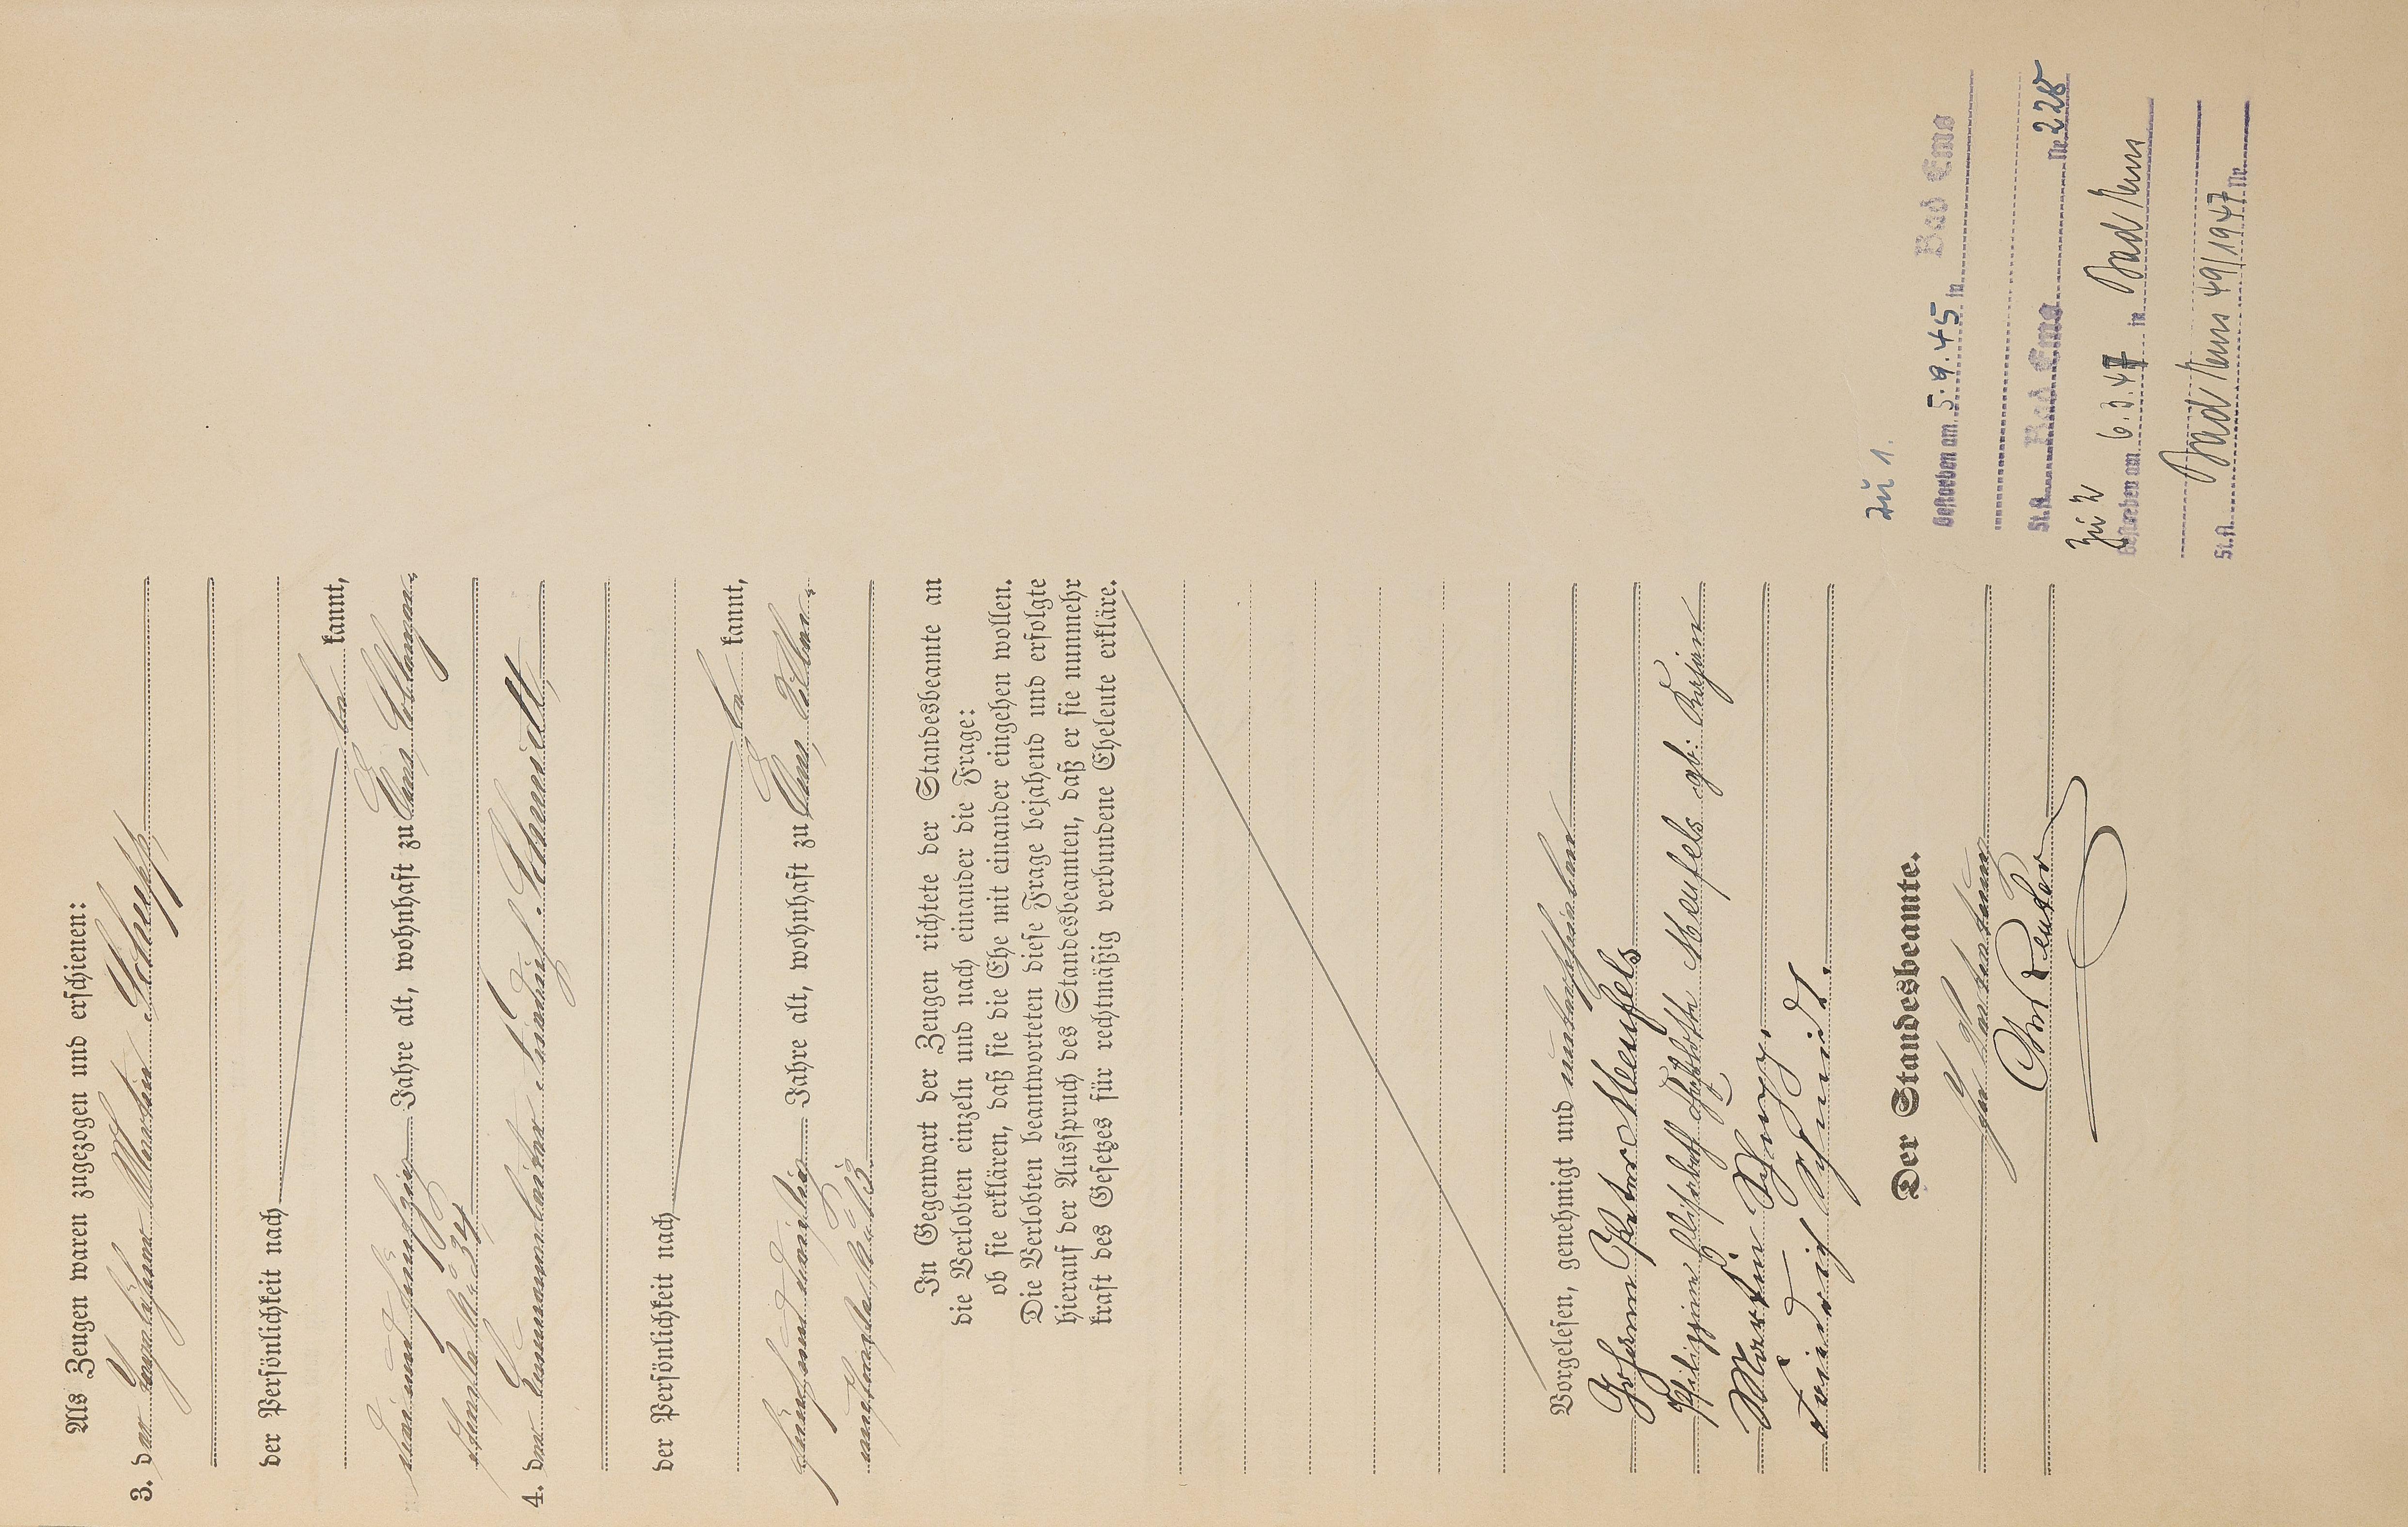 Als Zeugen waren zugezogen und erschienen:
3. der Taglöhner Martin Schupp
der Persönlichkeit nach
be kannt,
undfünfzig Jahre alt, wohnhaft zu Ems,
No 34
4. der Heinrich Schmidt,
der Persönlichkeit nach
be kannt,
fünfunddreißig Jahre alt, wohnhaft zu Ems,
In Gegenwart der Zeugen richtete der Standesbeamte an
die Verlobten einzeln und nach einander die Frage:
ob sie erklären, daß sie die Ehe mit einander eingehen wollen.
Die Verlobten beantworteten diese Frage bejahend und erfolgte
hierauf der Ausspruch des Standesbeamten, daß er sie nunmehr
kraft des Gesetzes für rechtmäßig verbundene Eheleute erkläre.
Vorgelesen, genehmigt und unterschrieben
Johann Peter Meusels
Philippine Elisabeth Meusels gb:
Martin Schupp.
Heinrich Schmidt.
Der Standesbeamte.
In Vertretung
Reuter
zu 1.
Gestorben am 5.9.45 in Bad Ems
St.A. Bad Ems Nr. 228
zu 2
Gestorben am 6.3.47 in Bad Ems
St.A. Bad Ems 49/1947 Nr.